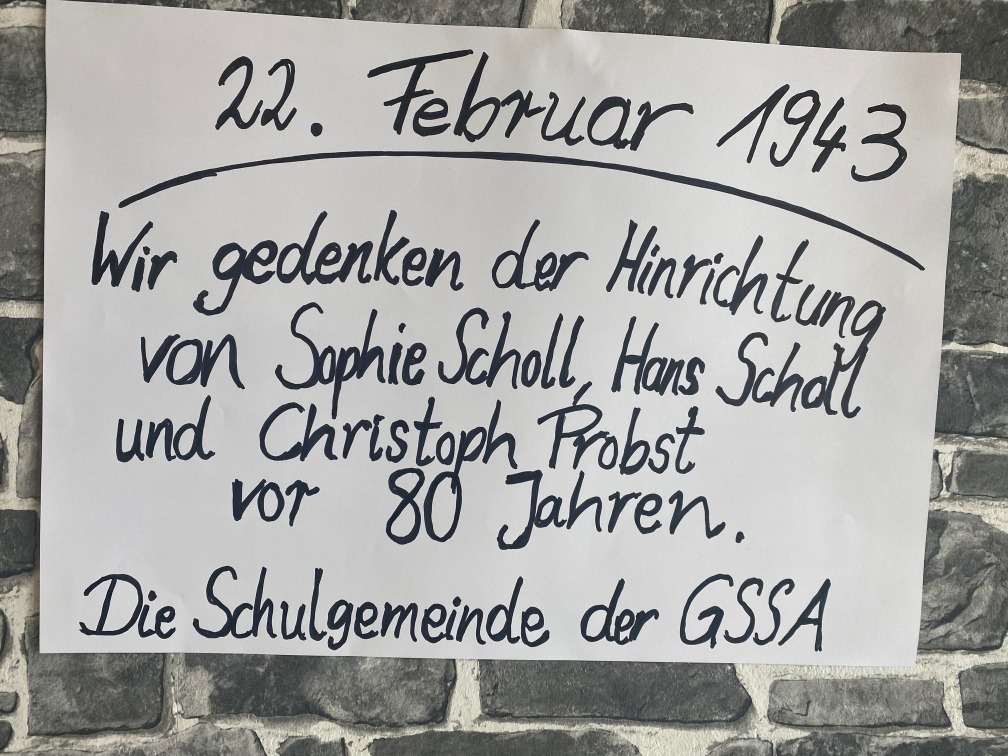 22. Februar 1943
Wir gedenken der Hinrichtung
von Sophie Scholl, Hans Scholl
und Christoph Probst
vor 80 Jahren.
Die Schulgemeinde der GSSA